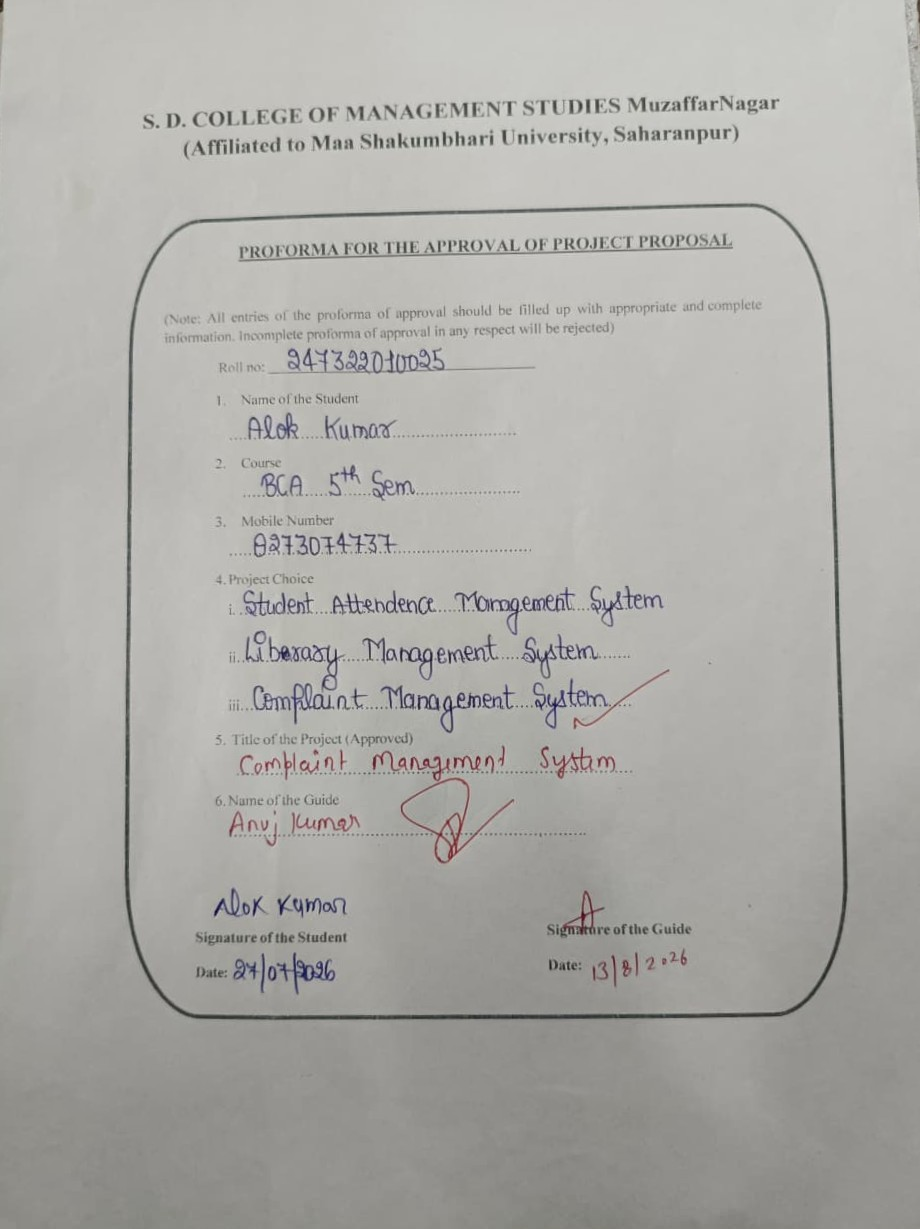 S. D. COLLEGE OF MANAGEMENT STUDIES MuzaffarNagar
(Affiliated to Maa Shakumbhari University, Saharanpur)
PROFORMA FOR THE APPROVAL OF PROJECT PROPOSAL
(Note: All entries of the proforma of approval should be filled up with appropriate and complete
information. Incomplete proforma of approval in any respect will be rejected)
Roll no: 247322010025
1. Name of the Student
Alok Kumar
2. Course
BCA 5th Sem
3. Mobile Number
8273074737
4. Project Choice
i. Student Attendence Management System
ii. Liberary Management System
iii. Complaint Management System
5. Title of the Project (Approved)
Complaint Management System
6. Name of the Guide
Anuj Kumar
Alok Kumar
Signature of the Student
Signature of the Guide
Date: 27/07/2026
Date: 13/8/2026